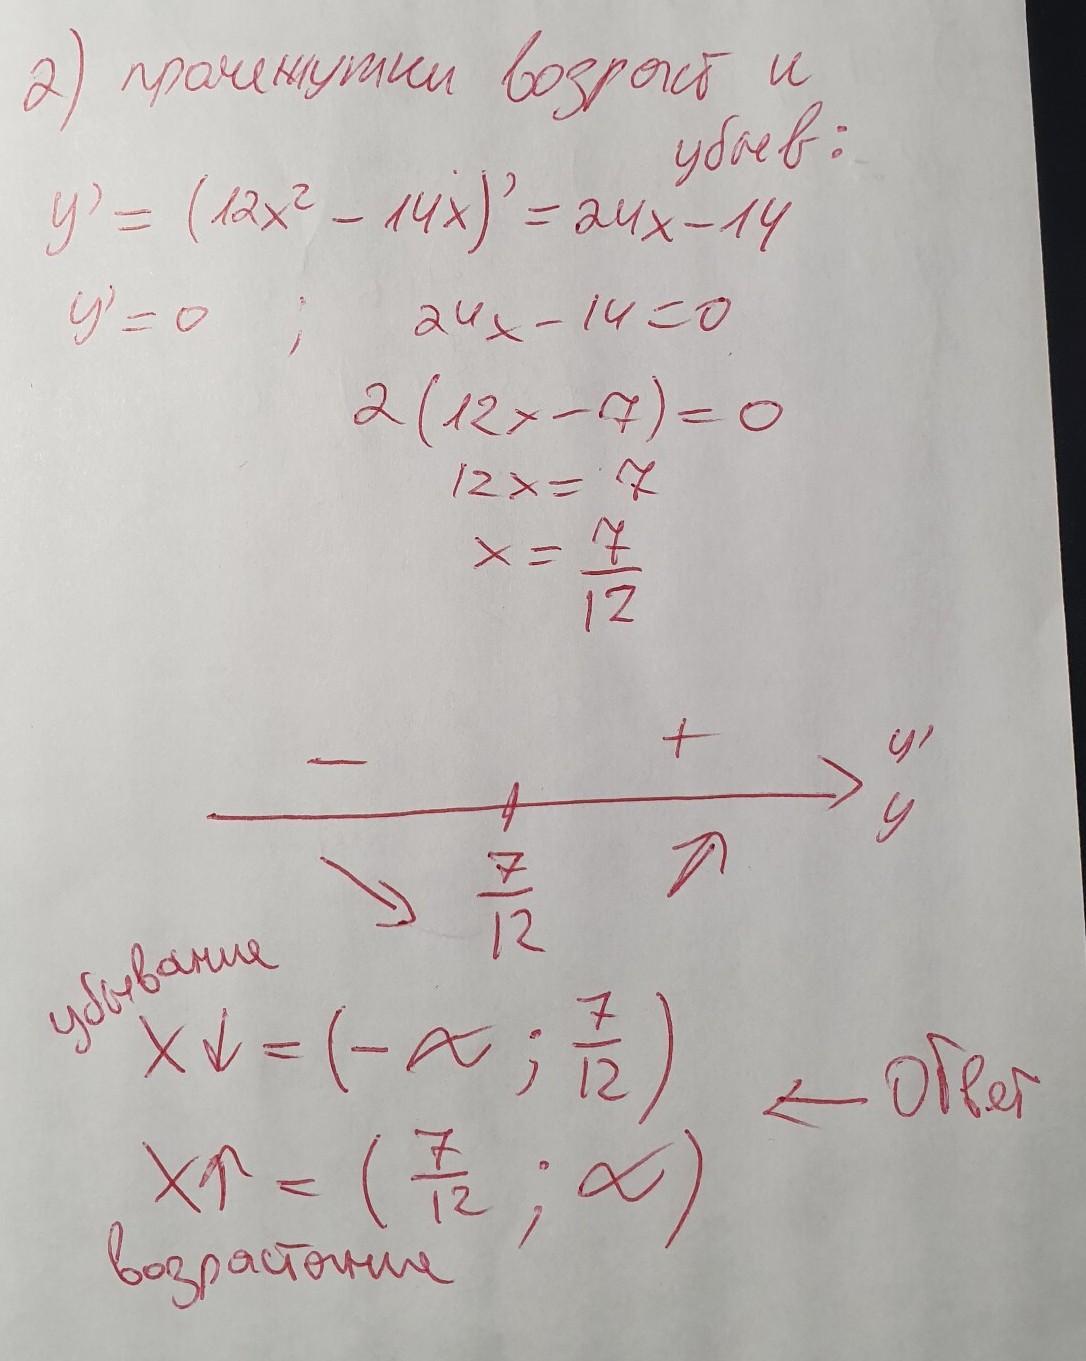 2) промежутки возраст и
убыв:
y' = (12x² - 14x)' = 24x - 14
y' = 0 ; 24x - 14 = 0
2(12x - 7) = 0
12x = 7
x = 7/12
- + y'
y
7/12
убывание
X↓ = (-∞ ; 7/12)
← Ответ
X↑ = (7/12 ; ∞)
возрастание